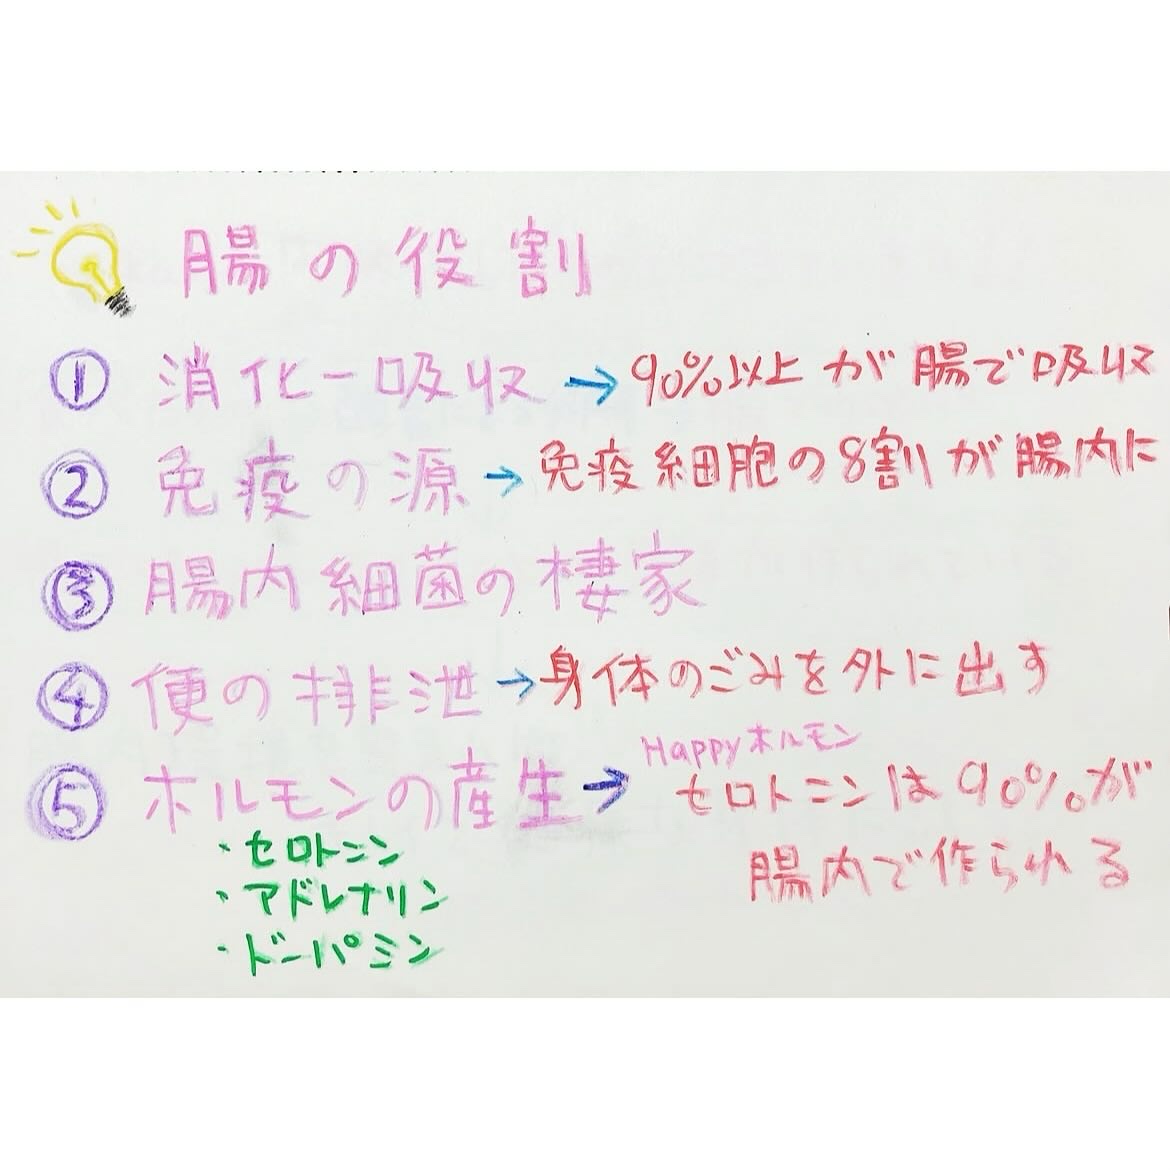 腸の役割
① 消化ー吸収 → 90%以上が腸で吸収
② 免疫の源 → 免疫細胞の8割が腸内に
③ 腸内細菌の棲家
④ 便の排泄 → 身体のごみを外に出す
Happyホルモン
⑤ ホルモンの産生 → セロトニンは90%が
腸内で作られる
・セロトニン
・アドレナリン
・ドーパミン